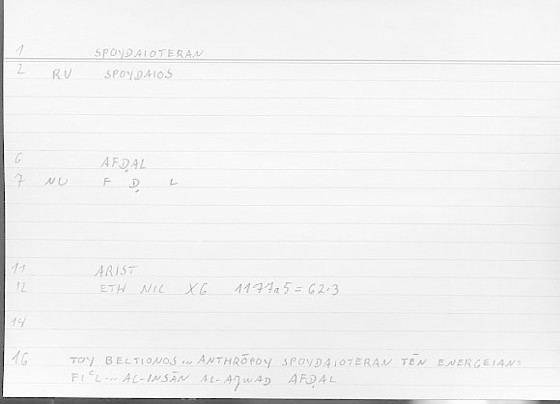 1 SPOYDAIOTERAN
2 RU SPOYDAIOS
6 AFḌAL
7 NU F Ḍ L
11 ARIST
12 ETH NIC X6 1177a5 = 62.3
14
16 TOY BELTIONOS .. ANTHRŌPOY SPOYDAIOTERAN TĒN ENERGEIAN:
FIᶜL .. AL-INSĀN AL-AǦWAD AFḌAL